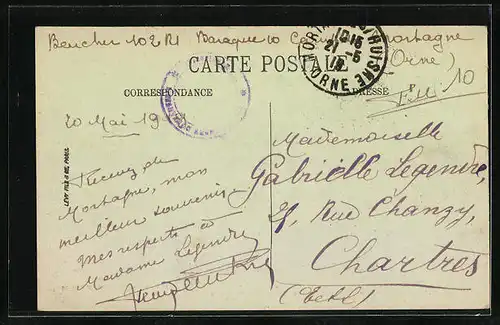 Beucher 102 RI Baraque 10 Mortagne
(Orne)
10
CARTE POSTALE
CORRESPONDANCE
ADRESSE
ORNE
21 -5
20 Mai
Recevez de
Mortagne, mon
meilleur souvenir
Mes respects à
Madame Legendre
Mademoiselle
Gabrielle Legendre
21, Rue Chanzy,
Chartres
(E et L)
LEVY FILS & Cie PARIS